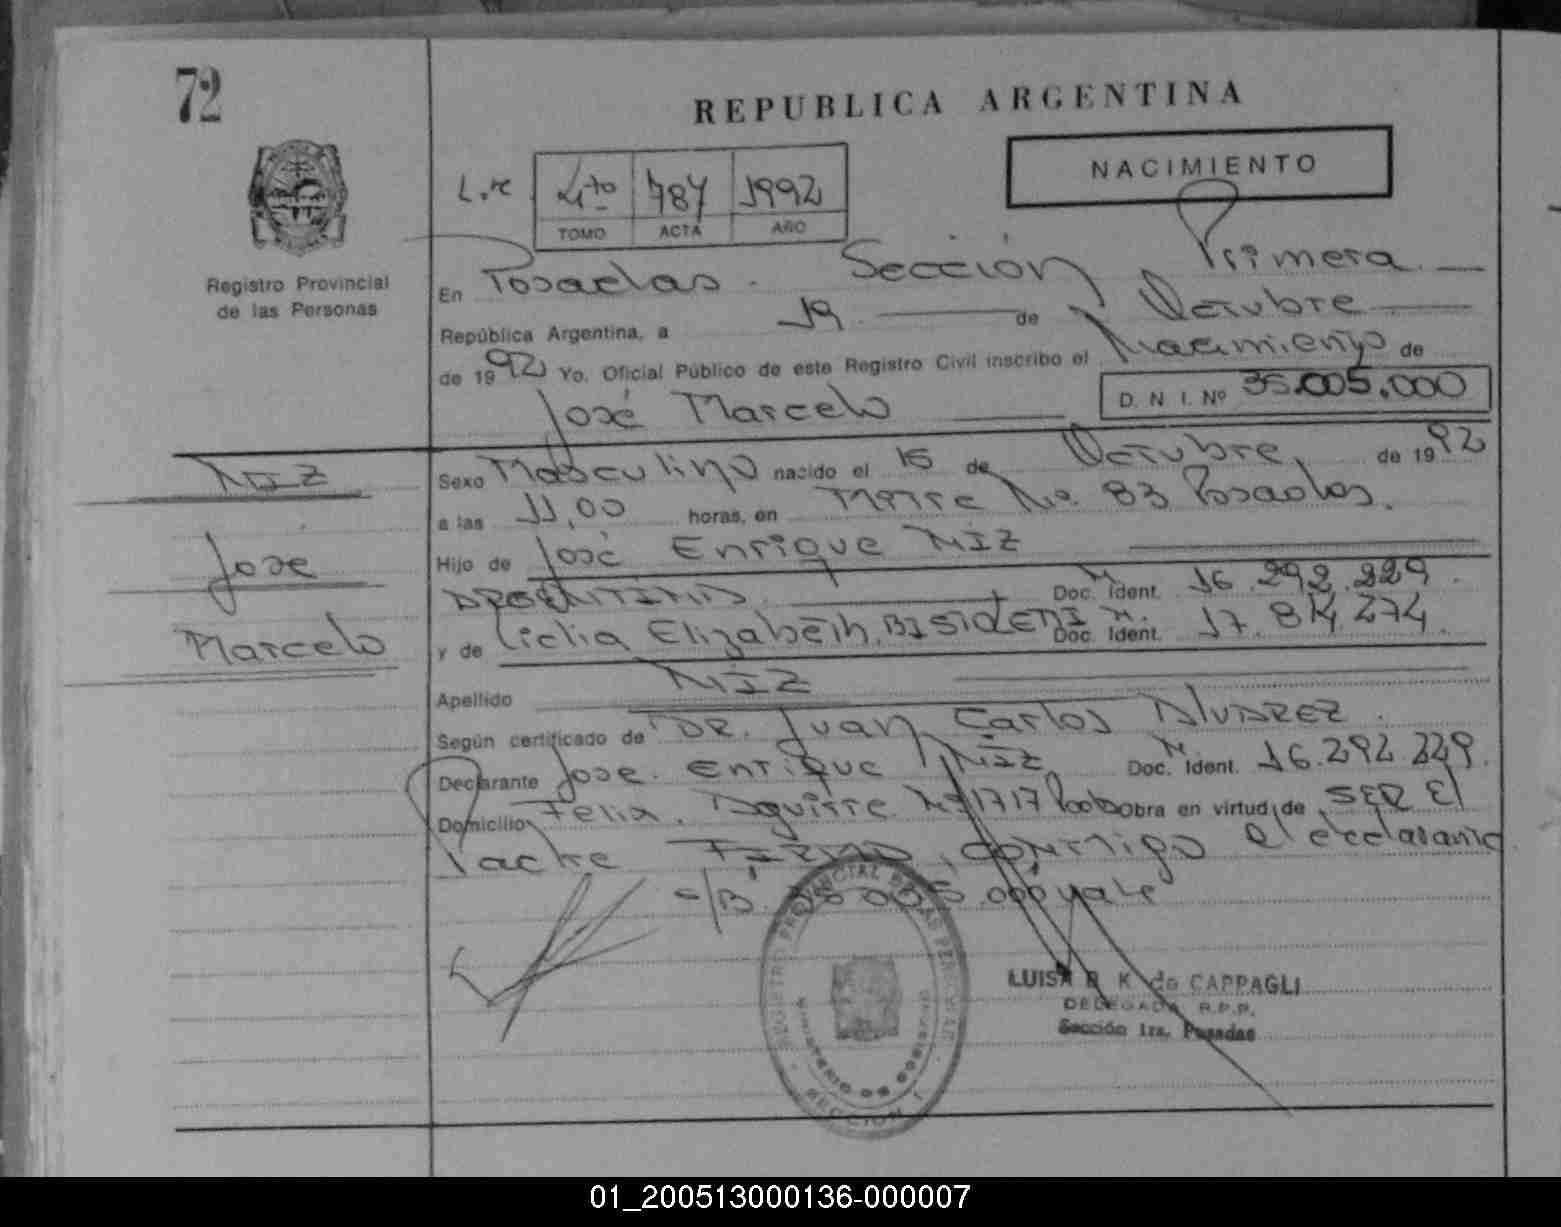 72
REPUBLICA ARGENTINA
NACIMIENTO
L.re 4to 787 1992
TOMO ACTA AÑO
Registro Provincial
de las Personas
En Posadas. Sección Primera
República Argentina, a 19 de Octubre
de 1992 Yo. Oficial Público de este Registro Civil inscribo el Nacimiento de
José Marcelo D. N. I. Nº 35.005.000
NIZ
José
Marcelo
Sexo Masculino nacido el 15 de Octubre de 1992
a las 11,00 horas, en No. 83 Posadas.
Hijo de José Enrique NIZ
ARGENTINA. Doc. Ident. 16.292.229.
y de Lidia Elizabeth. Doc. Ident. 17.814.274.
Apellido NIZ
Según certificado de DR. Juan Carlos ALVAREZ.
Declarante José. Enrique NIZ Doc. Ident. 16.292.229.
Domicilio Felix. Aguirre Nº 1717 obra en virtud de SER El
Padre FIRMA, conmigo el declarante
35.005.000 vale
REGISTRO PROVINCIAL DE LAS PERSONAS
MINISTERIO DE GOBIERNO
SECCION 1
LUISA B. K. de CAPPAGLI
DELEGADA R.P.P.
Sección 1ra. Posadas
01_200513000136-000007